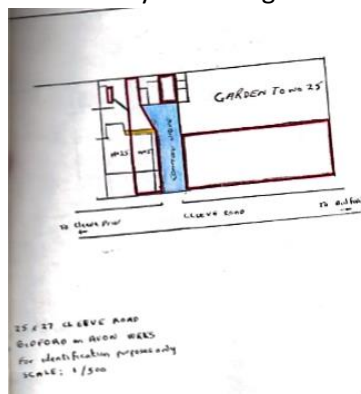 GARDEN TO No 25
No 25
No 27
COMMON DRIVE
To Cleeve Prior
CLEEVE ROAD
To Bidford
25 & 27 CLEEVE ROAD
BIDFORD on AVON WARKS
For identification purposes only
SCALE: 1/500